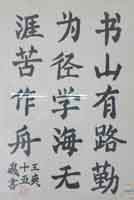 书山有路勤
为径学海无
涯苦作舟
王奕
十五
岁书